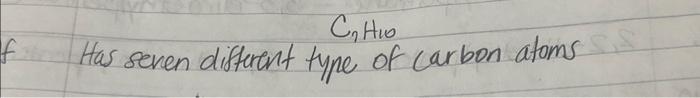 C₇H₁₀
f Has seven different type of carbon atoms